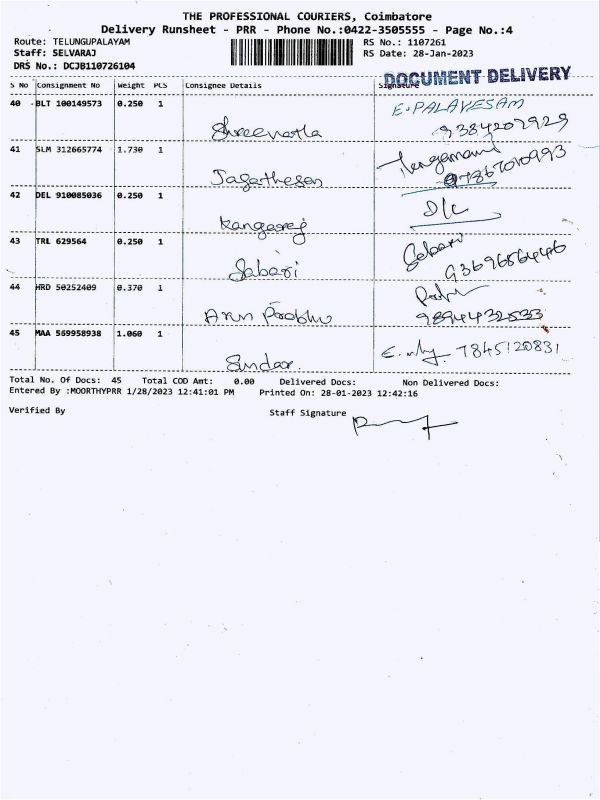 THE PROFESSIONAL COURIERS, Coimbatore
Delivery Runsheet - PRR - Phone No.:0422-3505555 - Page No.:4
Route: TELUNGUPALAYAM
RS No.: 1107261
Staff: SELVARAJ
RS Date: 28-Jan-2023
DRS No.: DCJB110726104
DOCUMENT DELIVERY
S No Consignment No Weight PCS Consignee Details Signature
40 BLT 100149573 0.250 1
E. PALAVESAM
Shreenatla 9384207929
41 SLM 312665774 1.730 1
Jagatheesan
42 DEL 910085036 0.250 1 D/C
Kangaraj
43 TRL 629564 0.250 1 Sabari
Sabari
44 HRD 50252409 0.370 1
Arun Prabhu 9894432533
45 MAA 569958938 1.060 1
Sundar. 7845120831
Total No. Of Docs: 45 Total COD Amt: 0.00 Delivered Docs: Non Delivered Docs:
Entered By :MOORTHYPRR 1/28/2023 12:41:01 PM Printed On: 28-01-2023 12:42:16
Verified By Staff Signature